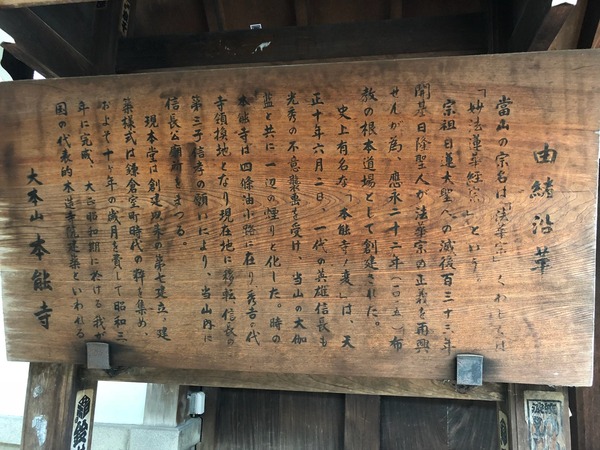 由緒沿革
當山の宗名は「法華宗」くわしくは
「妙法蓮華経宗」という
宗祖日蓮大聖人の滅後百三十三年、
開基日隆聖人が法華宗の正義を再興
せんが為、應永二十二年(一四一五)「布
教の根本道場として創建された。
史上有名な「本能寺ノ変」は、天
正十年六月二日、一代の英雄信長も
光秀の不意襲虫を受け、当山の大伽
藍と共に一辺の煙りと化した。時の
本能寺は四條油小路に在り秀吉の代
寺領換地となり現在地に移転信長の
第三子信孝の願いにより、当山内に
信長公廟所をまつる。
現本堂は創建以来の第七建立、建
築様式は鎌倉室町時代の粋を集め、
およそ十ヶ年の歳月を費して昭和三
年に完成、大正昭和期に於ける我が
国の代表的木造寺院建築といわれる
大本山 本能寺